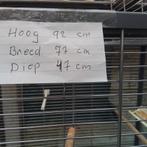 Hoog 92 cm
Breed 77 cm
Diep 47 cm